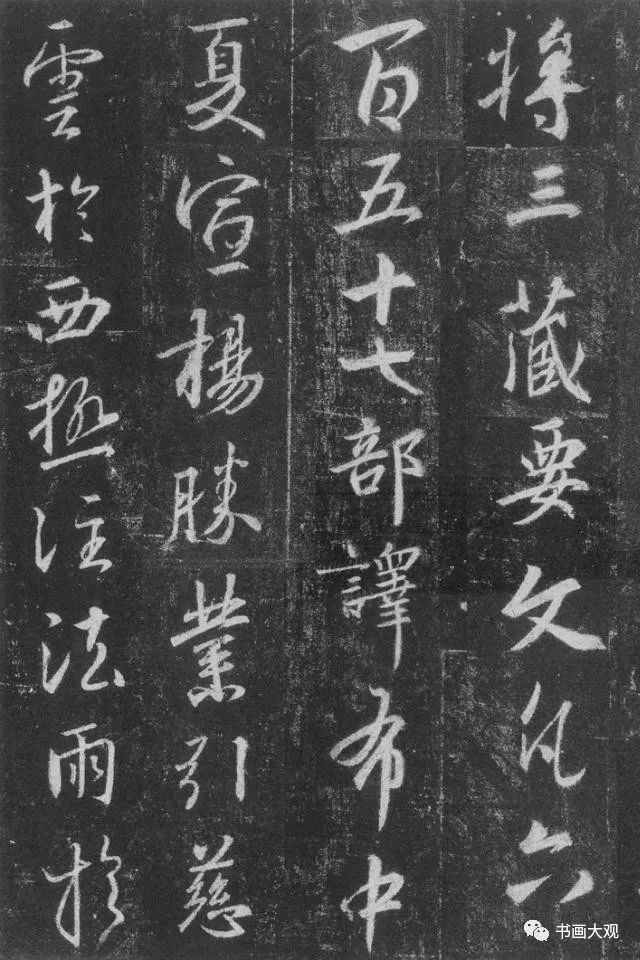 将三藏要文凡六
百五十七部譯布中
夏宣楊勝業引慈
雲於西極注法雨於
书画大观